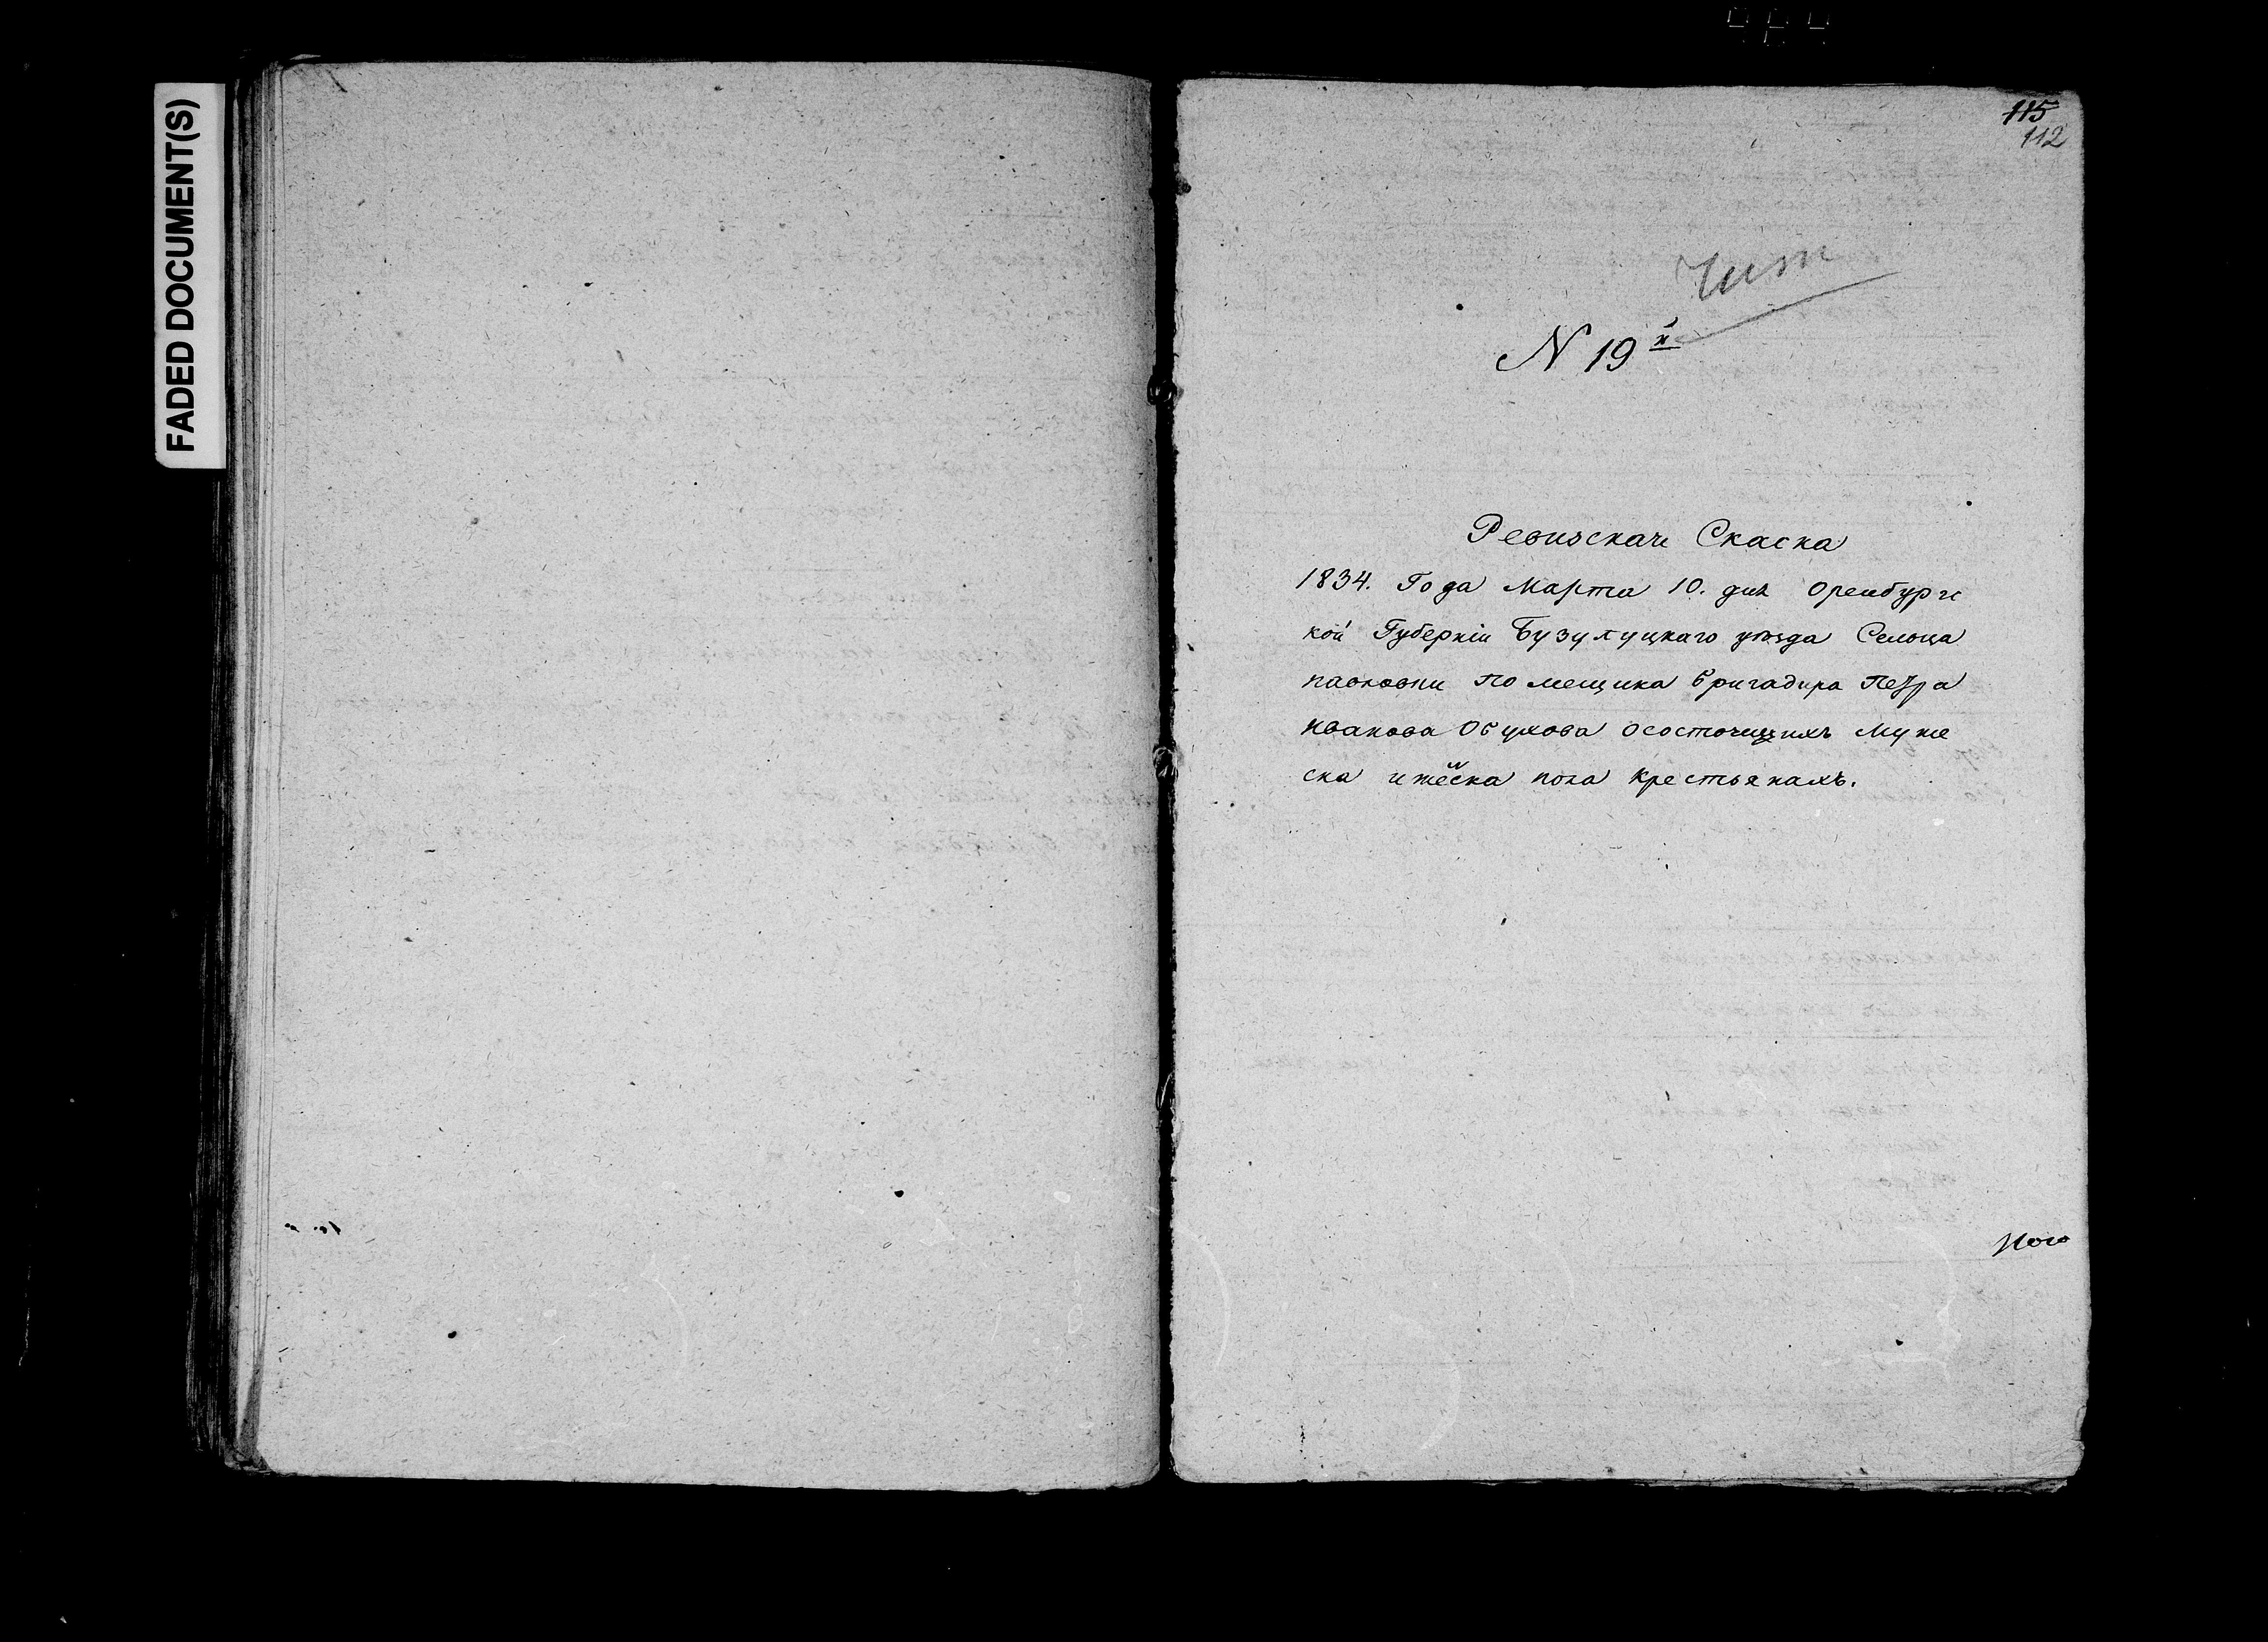 FADED DOCUMENT(S)
115
112
Чит
N 19й
Ревизская Скаска
1834. Года Марта 10. дня Оренбургс
кой Губернiи Бузулуцкаго уѣзда Сельца
павловки помещика бригадира Петра
Иванова Обухова осостоящихъ Муже
ска ижёнска пола крестьянахъ.